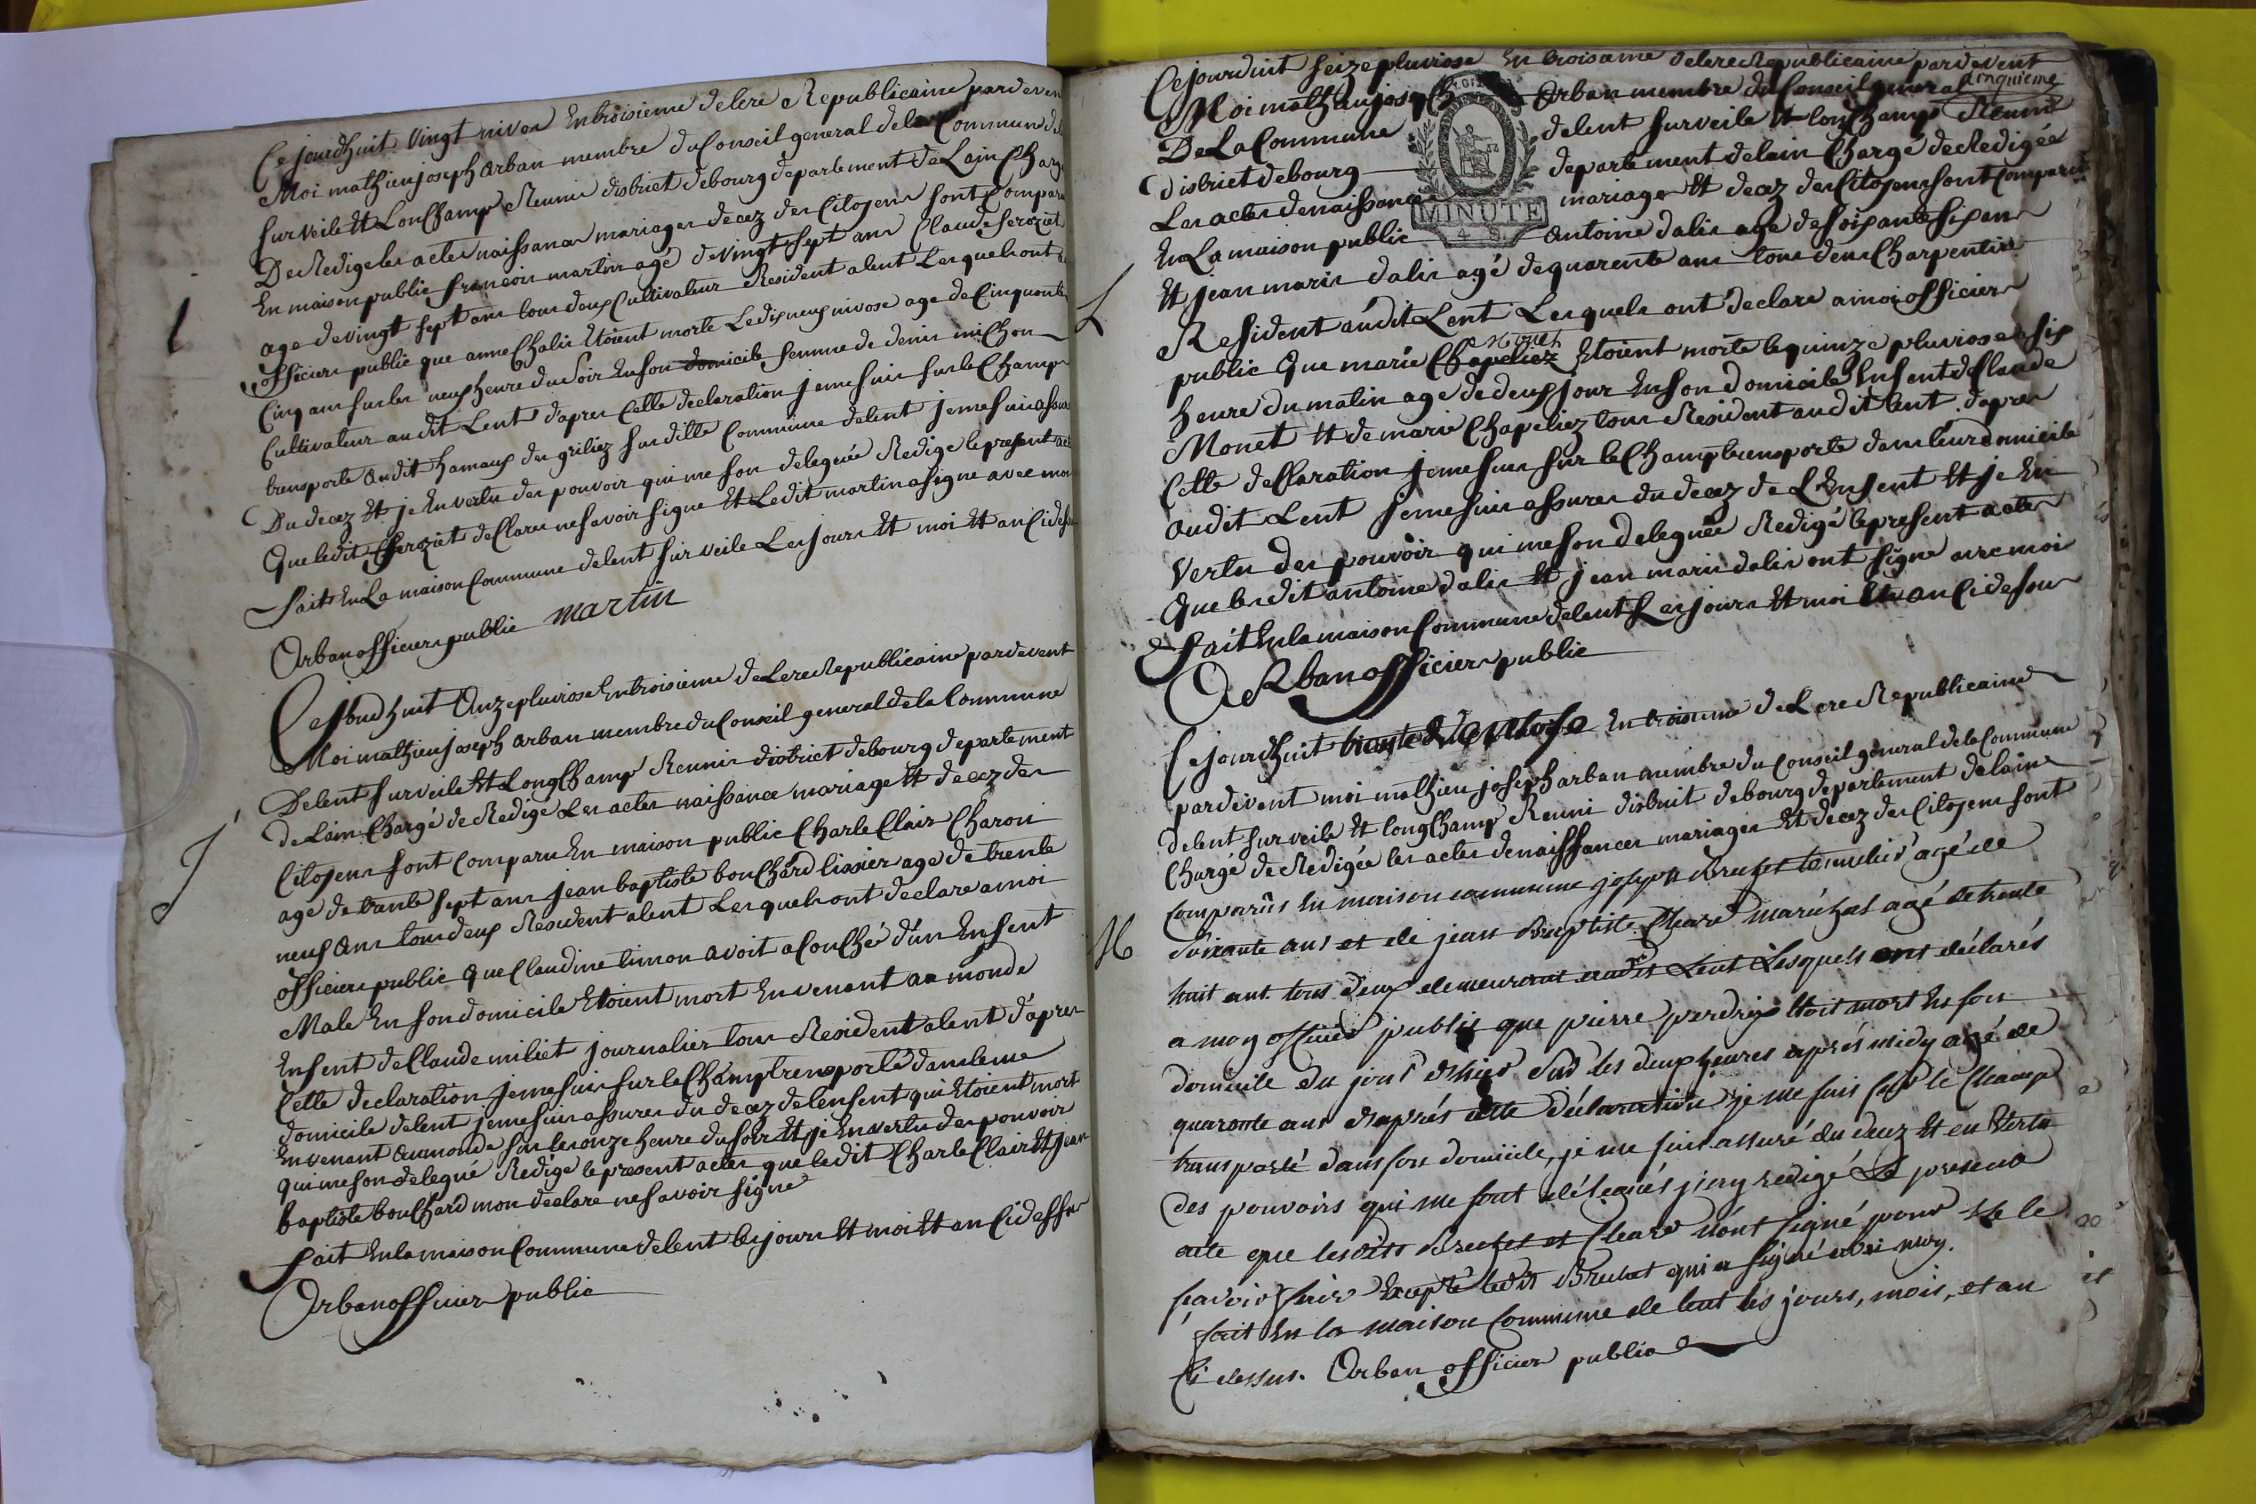 Ce jourdhuit vingt nivos En troisieme delere Republicaine pardeven
Moi mathieu joseph Orban membre du Conseil general dela Commune de
surveile Et LonChamp Reunis district debourg departement de Lain Charg
De Rediges les actes naissances mariages decez des Citoyens sont Compar
En maison public francois martin agé de vingt sept ans Claude ferozet
age de vingt sept ans tous deux Cultivateur Resident alent Lesquels ont
officiers public que anne Chalis Etoient morte Le dis neuf nivose age de Cinquante
Cinq ans sur les neuf heure du soir En son domicile femme de denis miChon
Cultivateur au dit Lent d'apres Cette declaration jemesuis sur le Champ
transporte au dit hamaux des griliez sur ditte Commune delent jemesuis assur
Du decez Et je En vertu des pouvoir qui me son deleguée Redige le present ac
Que ledit ferozet deClarer ne savoir signe Et Ledit martin a signe avec moi
Fait En La maison Commune delent surveile Les jours Et moi Et an Cidess
Orban officiers public martin
1
Ce Jourdhuit Onze pluviose En troisieme de Lere Republicaine pardevent
Moi mathieu joseph orban membre du Conseil general dela Commune
Delent surveile Et LongChamp Reunis district debourg departement
de Lain Chargé de Redigé Les actes naissance mariage Et decez des
Citoyens sont Comparu En maison public Charle Clair Charon
age de trante sept ans jean baptiste bouChard lissier age de trente
neuf ans tous deux Resident alent Lesquels ont declare amoi
officiers public que Claudine timon avoit a CouChé d'un Ensent
Male En son domicile Etoient mort En venent au monde
Ensent de Claude miliet journalier tous Resident alent d'apres
Cette declaration jemesuis sur le Champ trensporté dans leme
domicile delent jemesuis assurer du decez de lensent qui Etoient mort
En venent aumonde sur les onze heure du soir Et je En vertu des pouvoir
qui me son delegué Redigé le present actes que ledit Charle Clair Et jean
baptiste bouChard mon declare ne savoir signe
Fait En la maison Commune delent les jours Et moi Et an Cidessu
Orban officiers public
J
Ce jourduit seize pluviose En troisaime delere Republicaine pardevent
Moi mathieu joseph Orban membre du Conseil general cinquieme
De La Commune delent surveile Et lonChamp Reunis
district debourg departement delain Chargé de Redigée
Les actes denaissance mariages Et decez des Citoyens sont Comparus
En La maison public antoine dalis age de soisante sis ans
MINUTE
4 S.
Et jean marie dalis agé de quarente ans tous deux Charpentier
Resident audit Lent Lesquels ont declare a moi officiers
public Que marie Chapeliez Monet Etoient morte le quinze pluviose a sis
heure du matin age de deux jour En son domicile Ensent de Claude
Monet Et de marie Chapeliez tous Resident au dit Lent d'apres
Cette deClaration jemesuis sur le Champ trensporte dans leurs domicile
audit Lent jemesuis assurer du decez de L'Ensent Et je En
vertu des pouvoir qui me son deleguée Redigé le present actes
Que les dit antoine dalis Et jean marie dalis ont signe avec moi
Fait En la maison Commune delent Les jours Et moi Et an Cidesou
Orban officiers public
L
Ce jourdhuit trante ventose En troisieme de Lere Republicaine
pardevent moi mathieu joseph arban membre du Conseil general dela Commune
delent surveile Et longChamp Reuni distruit debourg departement delain
Chargé de Redigée les actes denaissances mariages Et decez des Citoyens sont
Comparûs En maison commune joseph Bruchet tonnelier agé de
Soixante ans et de jean Baptiste Cleard maréchal agé de trente
huit ans tous deux demeurant audit Lent Lesquels ont déclarés
a moy officier public que pierre perdrix Etoit mort En son
domicile du jour d'hier Sur les deux heures après midy agé de
quarante ans d'après cette déclaration je me suis sur le Champ
transporté dans son domicile, je me suis assuré du decez Et en Vertu
des pouvoirs qui me sont délegués j'ay redigé Le présent
acte que lesdits Bruchet et Cleard n'ont signé pour Ne le
sçavoir faire Excepté ledit Bruchet qui a signé avec moy.
fait En la maison Commune de lent les jours, mois, et an
Ci dessus. Orban officier public
M